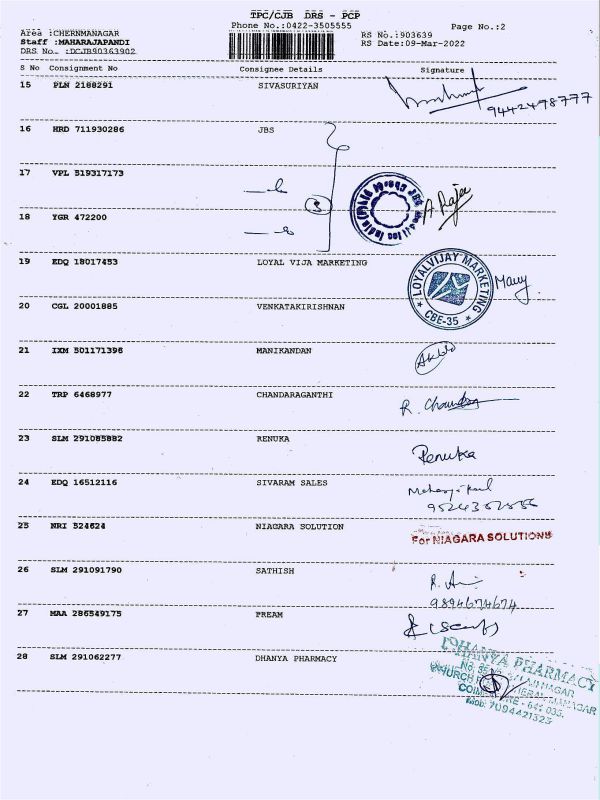 TPC/CJB DRS - PCP
Phone No.:0422-3505555
Page No.:2
Area :CHERNMANAGAR
Staff :MAHARAJAPANDI
DRS No. :DCJB90363902
RS No.:903639
RS Date:09-Mar-2022
S No Consignment No Consignee Details Signature
15 PLN 2188291 SIVASURIYAN
9442498777
16 HRD 711930286 JBS
17 VPL 519317173
3
A. Rajee
18 YGR 472200
19 EDQ 18017453 LOYAL VIJA MARKETING
LOYALVIJAY MARKETING
CBE-35
20 CGL 20001885 VENKATAKIRISHNAN
21 IXM 501171396 MANIKANDAN
22 TRP 6468977 CHANDARAGANTHI
R. Chandra
23 SLM 291085882 RENUKA
Renuka
24 EDQ 16512116 SIVARAM SALES
25 NRI 524624 NIAGARA SOLUTION
For NIAGARA SOLUTIONS
26 SLM 291091790 SATHISH
9894674674
27 MAA 286549175 PREAM
28 SLM 291062277 DHANYA PHARMACY
DHANYA PHARMACY
Mob: 7094421323